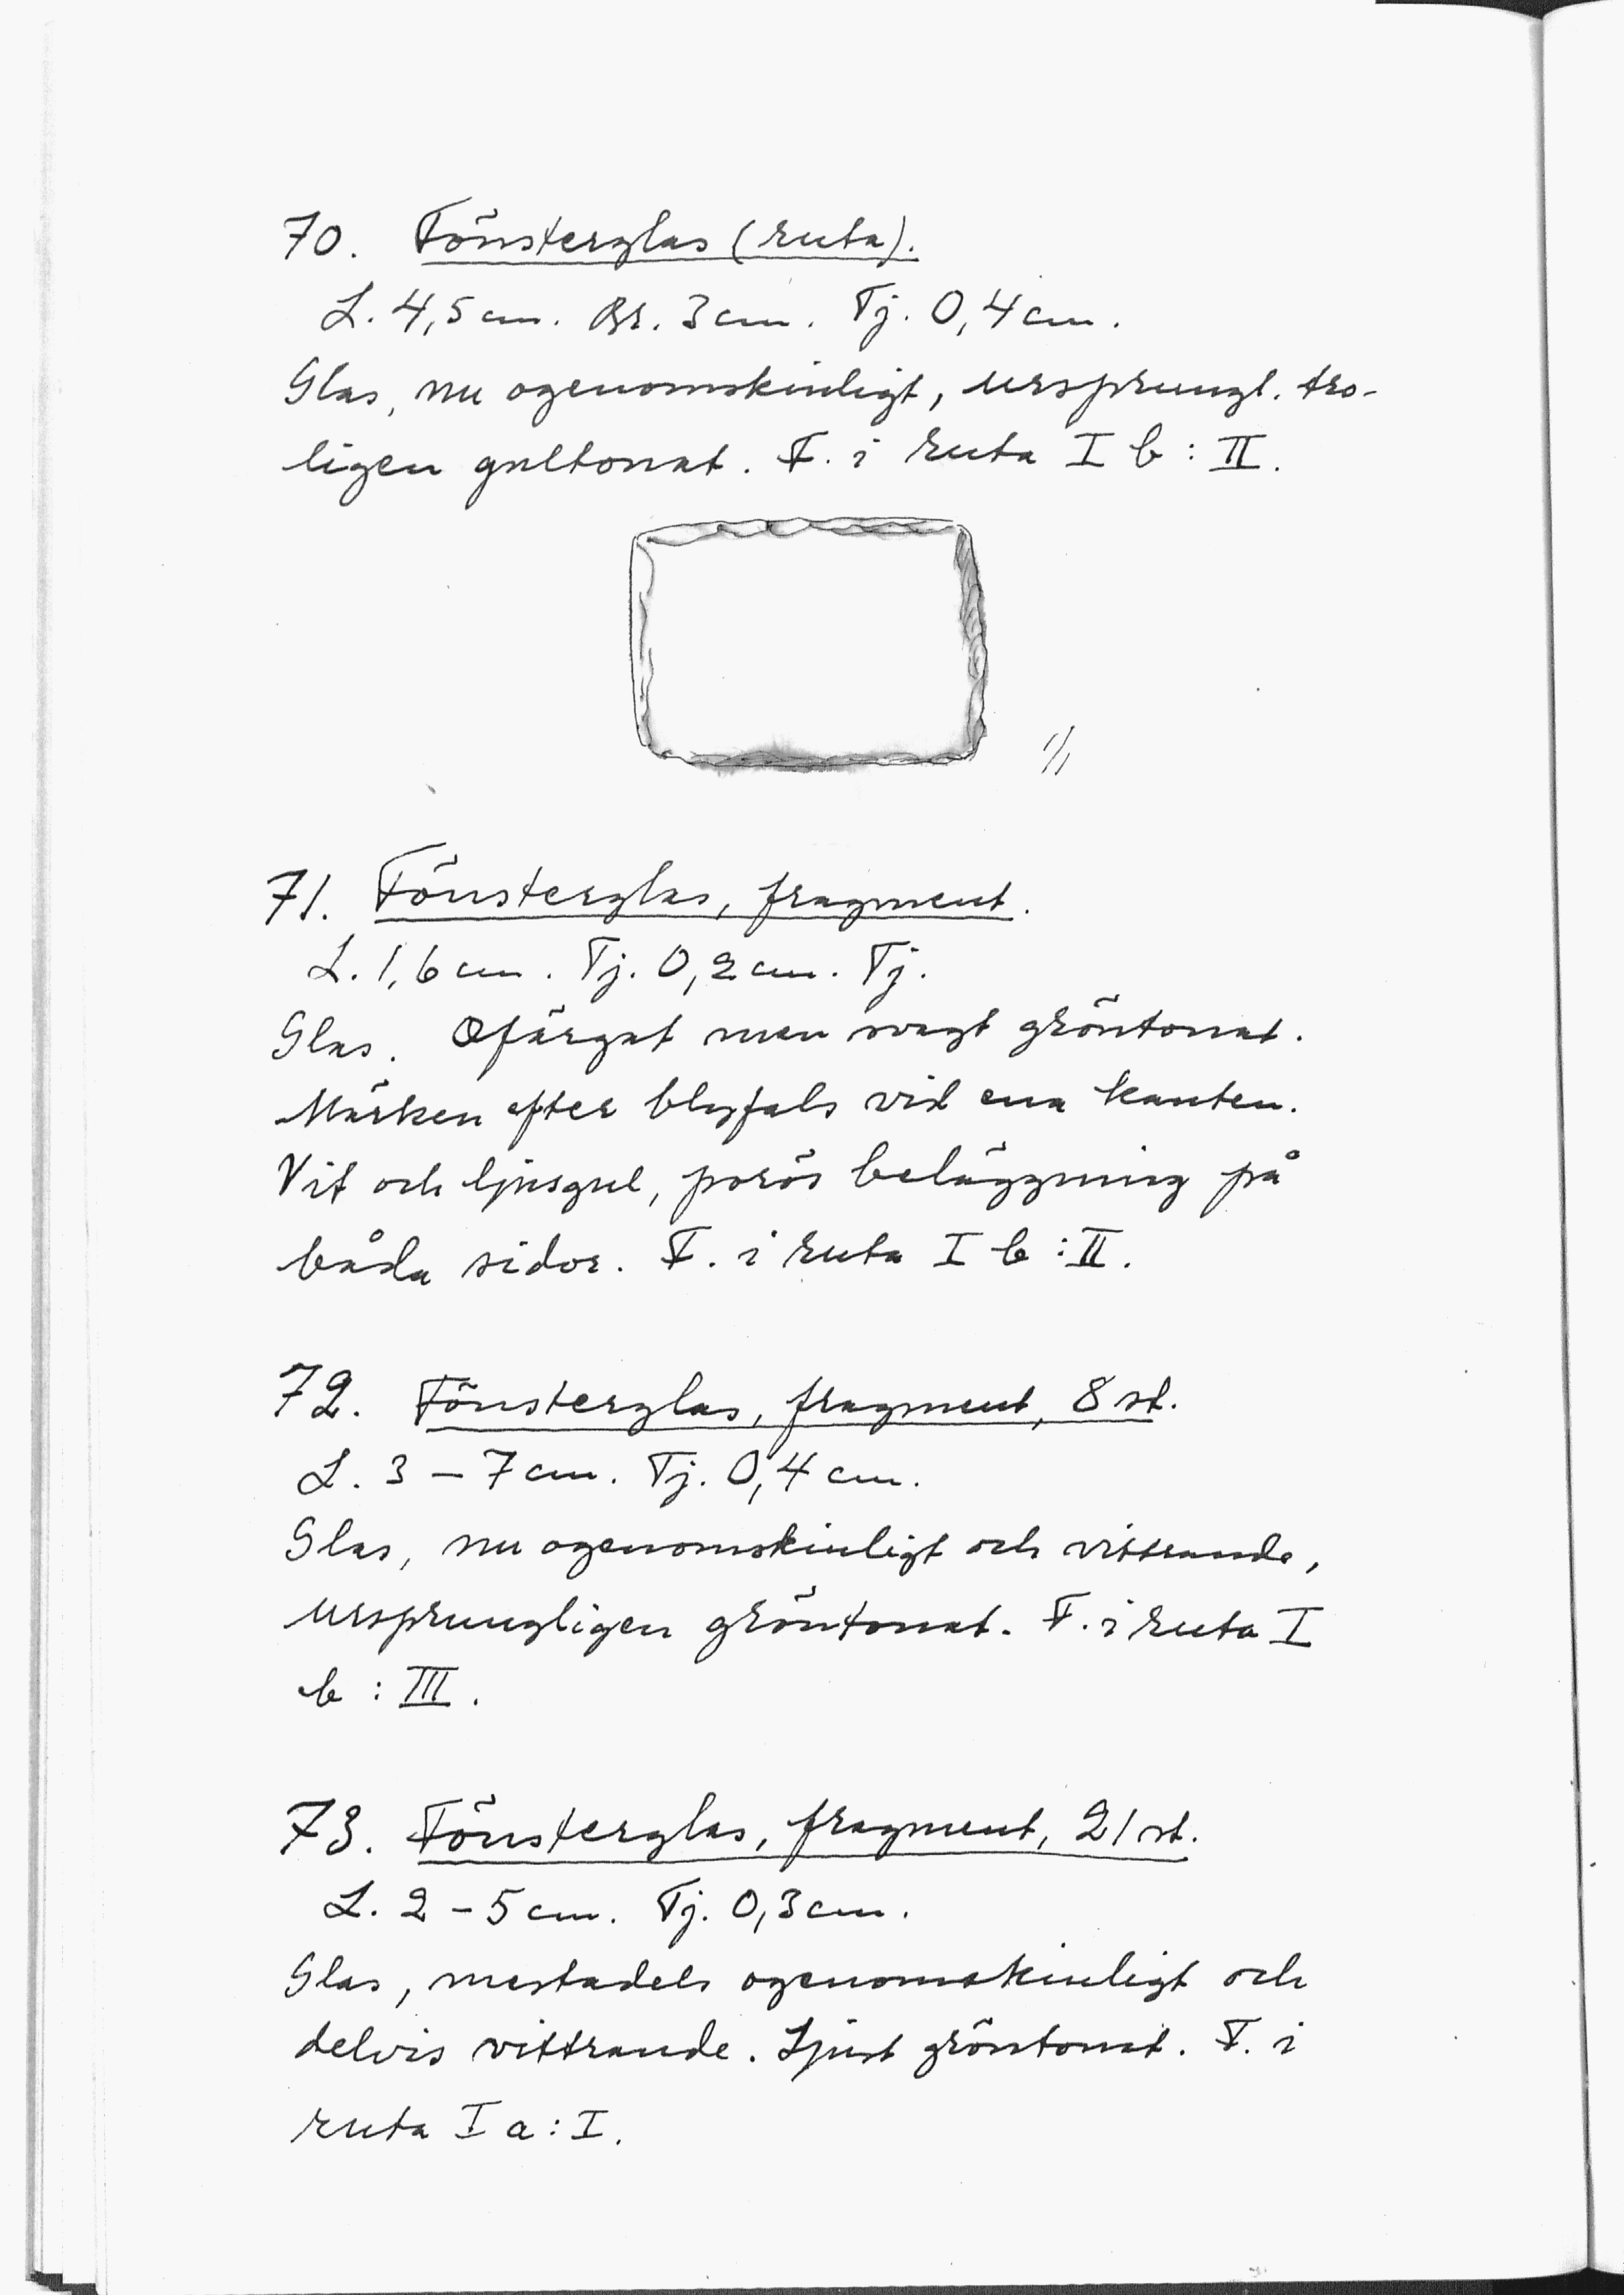 70. Fönsterglas (ruta).
L. 4,5 cm. Br. 3 cm. Tj. 0,4 cm.
Glas, nu ogenomskinligt, ursprungl. tro-
ligen gultonat. F. i ruta I b : II.
1/1
71. Fönsterglas, fragment.
L. 1,6 cm. Tj. 0,2 cm. Tj.
Glas. Ofärgat men svagt gröntonat.
Märken efter blyfals vid ena kanten.
Vit och ljusgul, porös beläggning på
båda sidor. F. i ruta I b : II.
72. Fönsterglas, fragment, 8 st.
L. 3 – 7 cm. Tj. 0,4 cm.
Glas, nu ogenomskinligt och vittrande,
ursprungligen gröntonat. F. i ruta I
b : III.
73. Fönsterglas, fragment, 21 st.
L. 2 – 5 cm. Tj. 0,3 cm.
Glas, mestadels ogenomskinligt och
delvis vittrande. Ljust gröntonat. F. i
ruta I a : I.